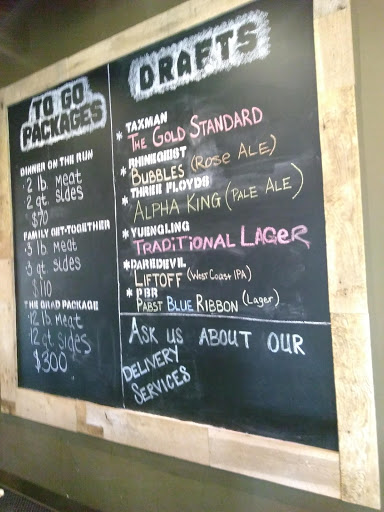 TO GO
PACKAGES
DINNER ON THE RUN
2 lb meat
2 qt sides
$70
FAMILY GET-TOGETHER
3 lb meat
3 qt sides
$110
THE GRAD PACKAGE
12 lb meat
12 qt sides
$300
DRAFTS
* TAXMAN
THE GOLD STANDARD
* RHINEGEIST
BUBBLES (ROSE ALE)
* THREE FLOYDS
ALPHA KING (PALE ALE)
* YUENGLING
TRADITIONAL LAGER
* DAREDEVIL
LIFTOFF (West Coast IPA)
* PBR
PABST BLUE RIBBON (Lager)
ASK US ABOUT OUR
DELIVERY
SERVICES